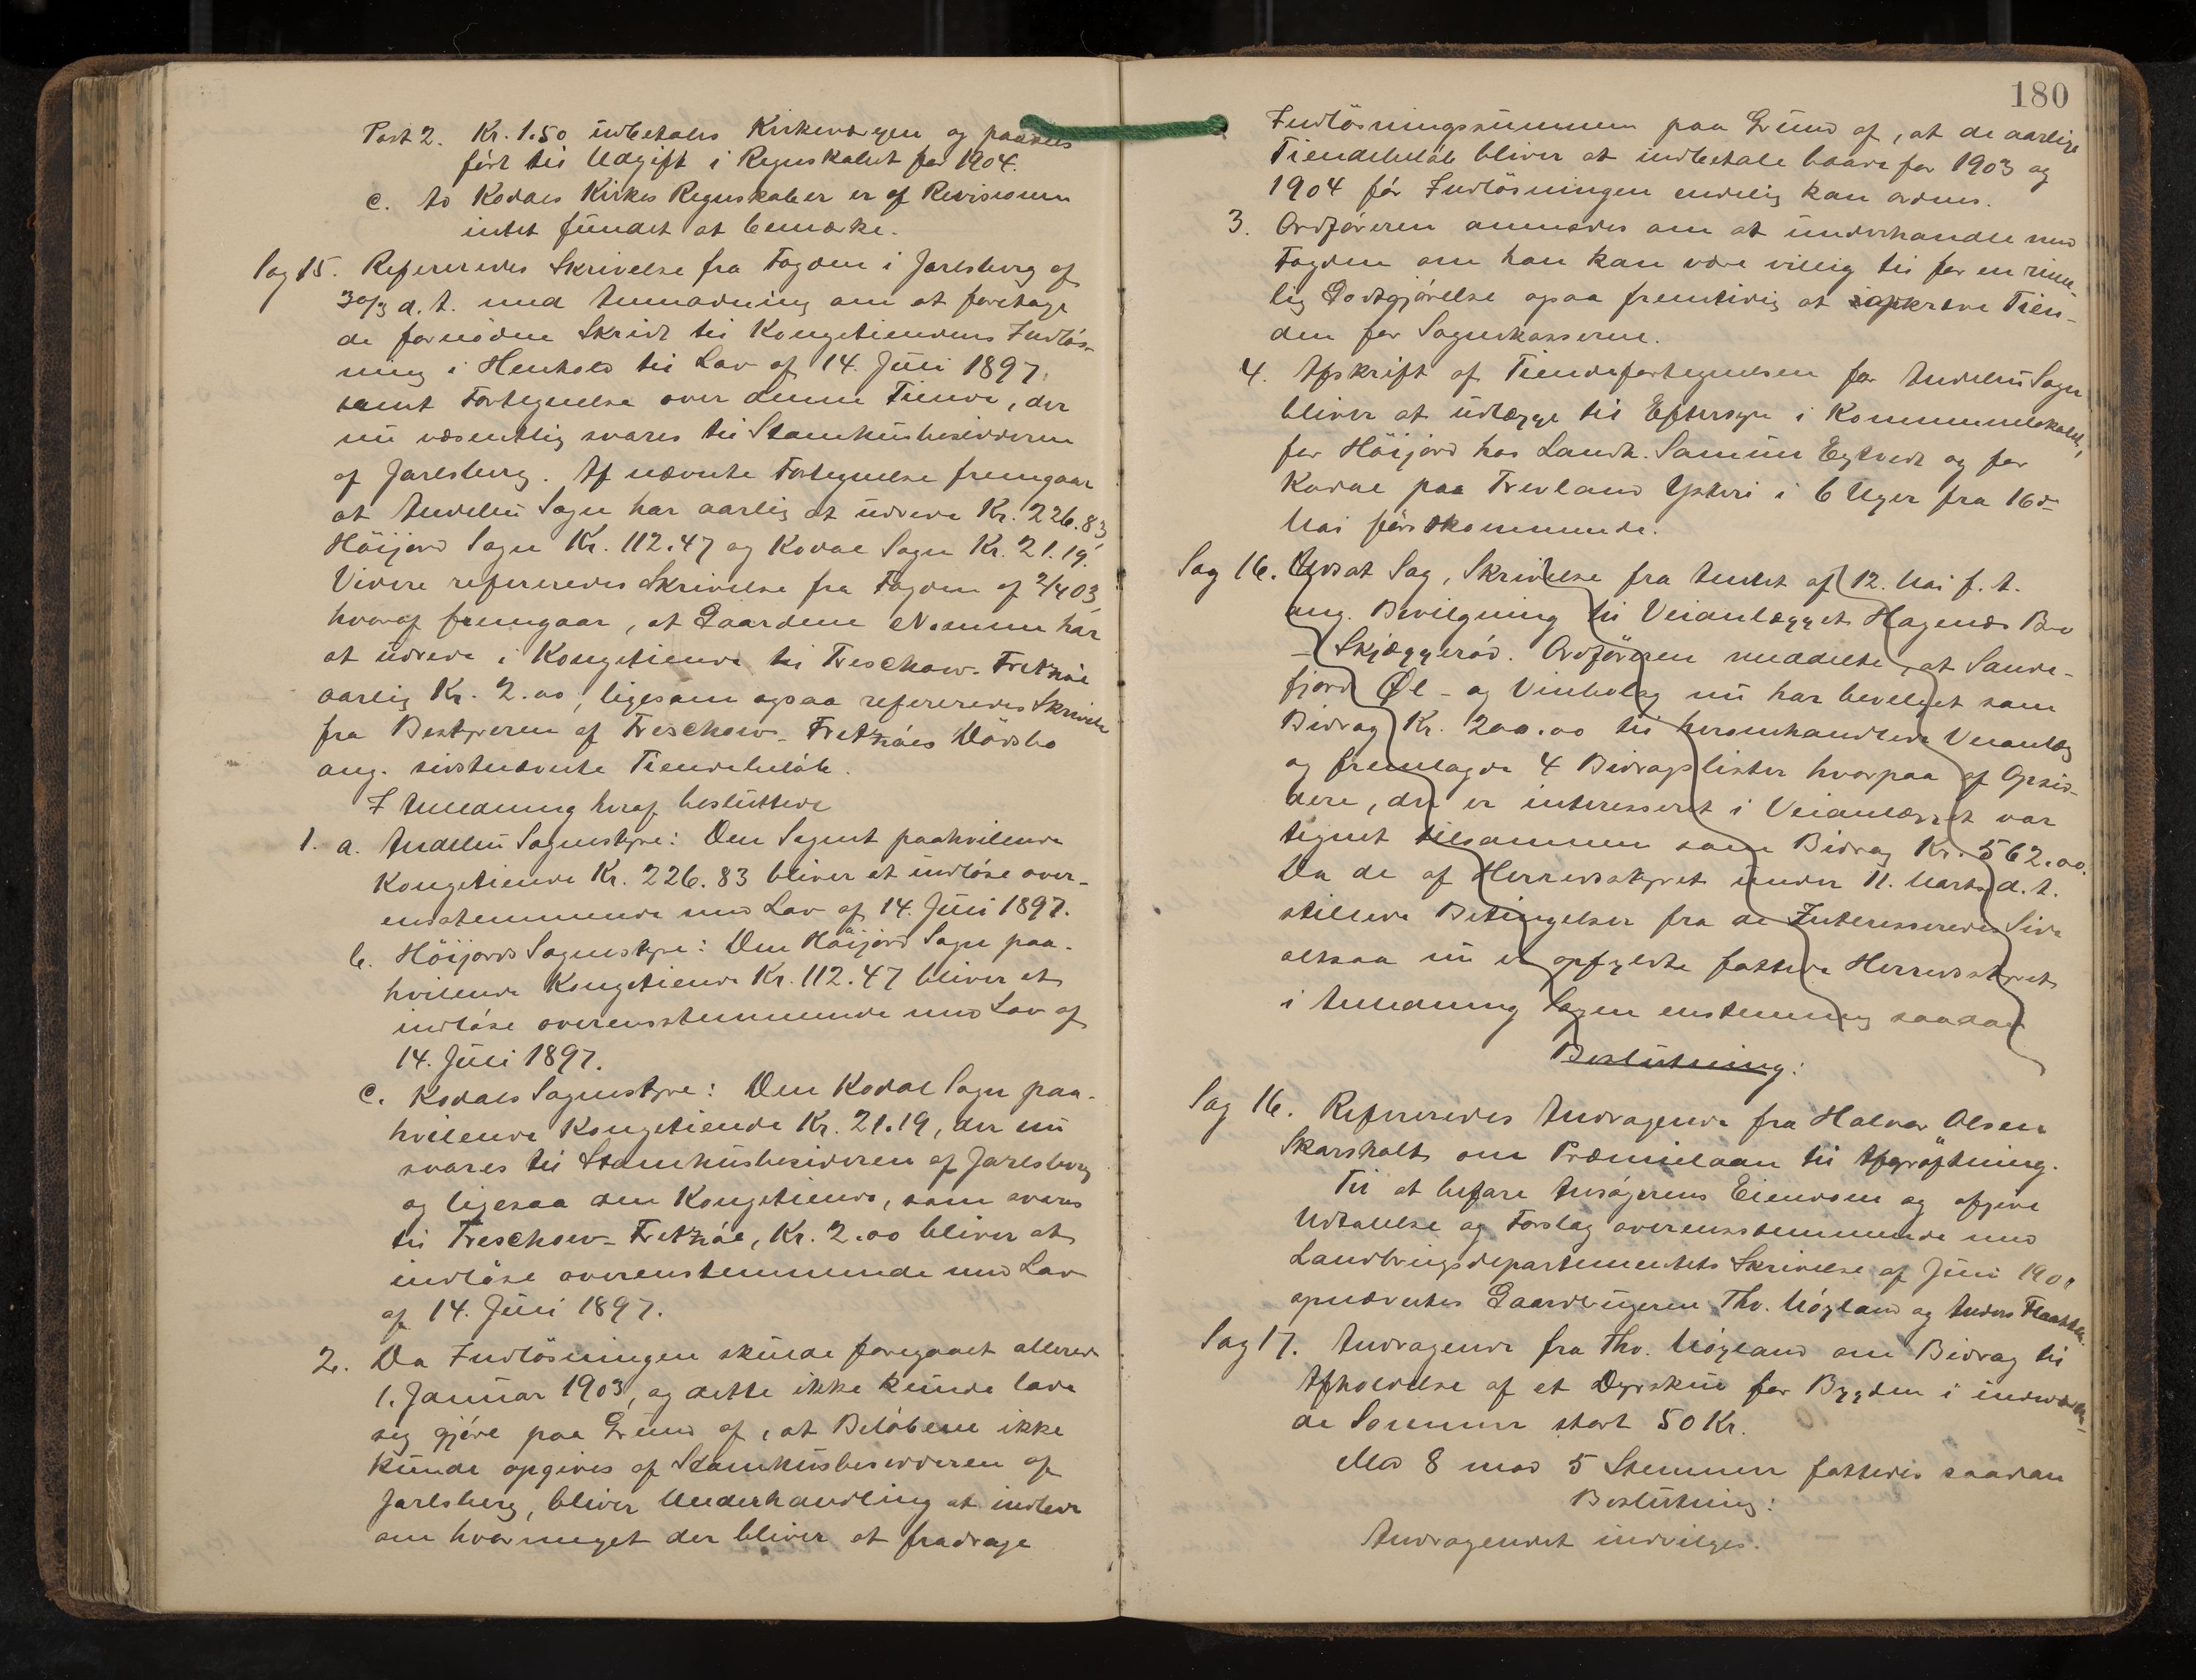 Post 2. Kr. 1.50 indbetales Kirkeværgen og paasees
ført til Udgift i Regnskabet for 1904.
c. to Kodals Kirkes Regnskaber er af Revisionen
intet fundet at bemærke.
Sag 15. Refereredes Skrivelse fra Fogden i Jarlsberg af
30/3 d. A. med Anmodning om at foretage
de fornödne Skridt til Kongetiendens Indløs-
ning i Henhold til Lov af 14. Juli 1897.
samt Fortegnelse over denne Tiende, der
nu væsentlig svares til Stamhusbesidderen
af Jarlsberg. Af nævnte Fortegnelse fremgaar
at Andebu Sogn har aarlig at udrede Kr. 226.83,
Höijord Sogn Kr. 112.47 og Kodal Sogn Kr. 21.19.
Videre refereredes Skrivelse fra Fogden af 2/4 03,
hvoraf fremgaar, at Gaardene Nommen har
at udrede i Kongetiende til Treschow-Fritzöe
aarlig Kr. 2.00, ligesom ogsaa refereredes Skrivelse
fra Bestyreren af Treschow-Fritzöes Dödsbo
ang. sidstnævnte Tiendebeløb.
I Anledning heraf besluttede
1. a. Andebu Sognestyre: Den Sognet paahvilende
Kongetiende Kr. 226.83 bliver at indløse over-
ensstemmende med Lov af 14. Juli 1897.
b. Höijords Sognestyre: Den Höijord Sogn paa-
hvilende Kongetiende Kr. 112.47 bliver at
indløse overensstemmende med Lov af
14. Juli 1897.
c. Kodals Sognestyre: Den Kodal Sogn paa-
hvilende Kongetiende Kr. 21.19, der nu
svares til Stamhusbesidderen af Jarlsberg
og ligesaa den Kongetiende, som svares
til Treschow-Fritzöe, Kr. 2.00 bliver at
indløse overenstemmende med Lov
af 14. Juli 1897.
2. Da Indlösningen skulde foregaaet allerede
1. Januar 1903, og dette ikke kunde lade
sig gjøre paa Grund af, at Beløbene ikke
kunde opgives af Stamhusbesidderen af
Jarlsberg, bliver Underhandling at indlede
om hvormeget der bliver at fradrage
180
Indlösningssummen paa Grund af, at de aarlige
Tiendebeløb bliver at indbetale baade for 1903 og
1904 før Indlösningen endelig kan ordnes.
3. Ordføreren anmodes om at underhandle med
Fogden om han kan være villig til for en rime-
lig Godtgjørelse ogsaa fremtidig at opkræve Tien-
den for Sognekasserne.
4. Afskrift af Tiendefortegnelsen for Andebu Sogn
bliver at udlægge til Eftersyn i Kommunelokalet,
for Höijord hos Landh. Samuer Eytvedt og for
Kodal paa Trevland Ysteri i 6 Uger fra 16de
Mai førstkommende.
Sag 16. Udsat Sag, Skrivelse fra Amtet af 12. Mai f. A.
ang. Bevilgning til Veianlægget Hagenæs Bro
– Skjæggerød. Ordføreren meddelte, at Sande-
fjord Øl- og Vinbolag nu har bevilget som
Bidrag Kr. 200.00 til heromhandlede Veianlæg
og fremlagde 4 Bidragslister hvorpaa af Opsid-
dere, der er interesseret i Veianlægget var
tegnet tilsammen som Bidrag Kr. 562.00.
Da de af Herredsstyret under 11. Marts d. A.
stillede Betingelser fra de Interesseredes Side
altsaa nu er opfyldte fattede Herredsstyret
i Anledning Sagen enstemmig saadan
Beslutning:
Sag 16. Refereredes Andragende fra Halvor Olsen
Skarsholt om Præmielaan til Afgröftning.
Til at befare Ansøgerens Eiendom og afgive
Udtalelse og Forslag overensstemmende med
Landbrugsdepartementets Skrivelse af Juni 1901
opnævntes Gaardbrugerne Thv. Møyland og Anders
Sag 17. Andragende fra Thv. Møyland om Bidrag til
Afholdelse af et Dyrskue for Bygden i indeværen-
de Sommer stort 50 Kr.
Med 8 mod 5 Stemmer fattedes saadan
Beslutning:
Andragendet indvilges.